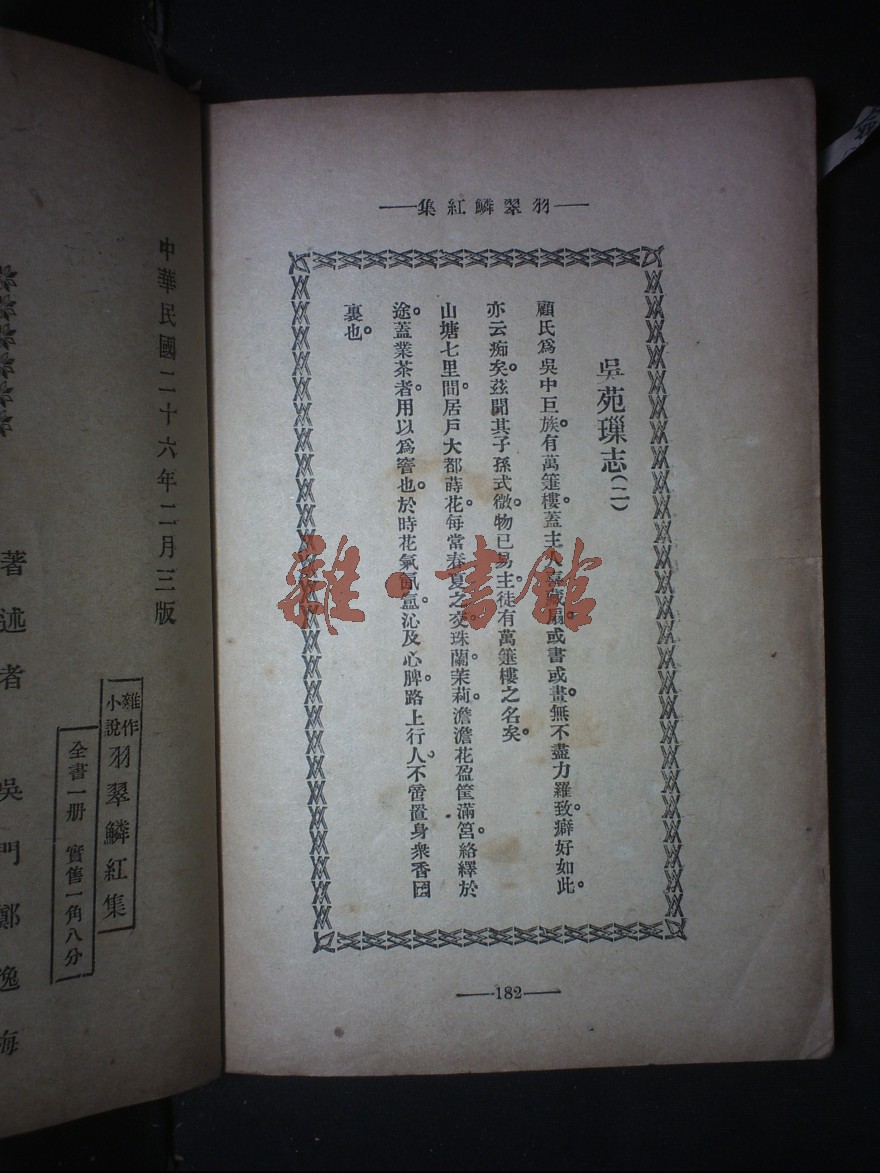 羽翠鱗紅集
吳苑璅志(二)
顧氏爲吳中巨族。有萬箑樓。蓋主人喜藏扇。或書或畫。無不盡力羅致。癖好如此。
亦云痴矣。茲聞其子孫式微。物已易主。徒有萬箑樓之名矣。
山塘七里間。居戶大都蒔花。每當春夏之交。珠蘭茉莉。澹澹花盈筐滿筥。絡繹於
途。蓋業茶者。用以爲窨也。於時花氣氤氳。沁及心脾。路上行人。不啻置身衆香國
裏也。
182
中華民國二十六年二月三版
雜作小說 羽翠鱗紅集
全書一册 實售一角八分
著述者 吳門鄭逸梅
雜·書館